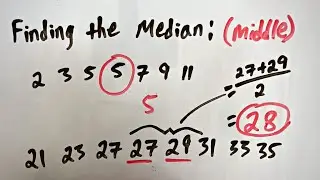 Finding the Median: (middle)
2 3 5 5 7 9 11
5
27+29
2
= 28
21 23 27 27 29 31 33 35